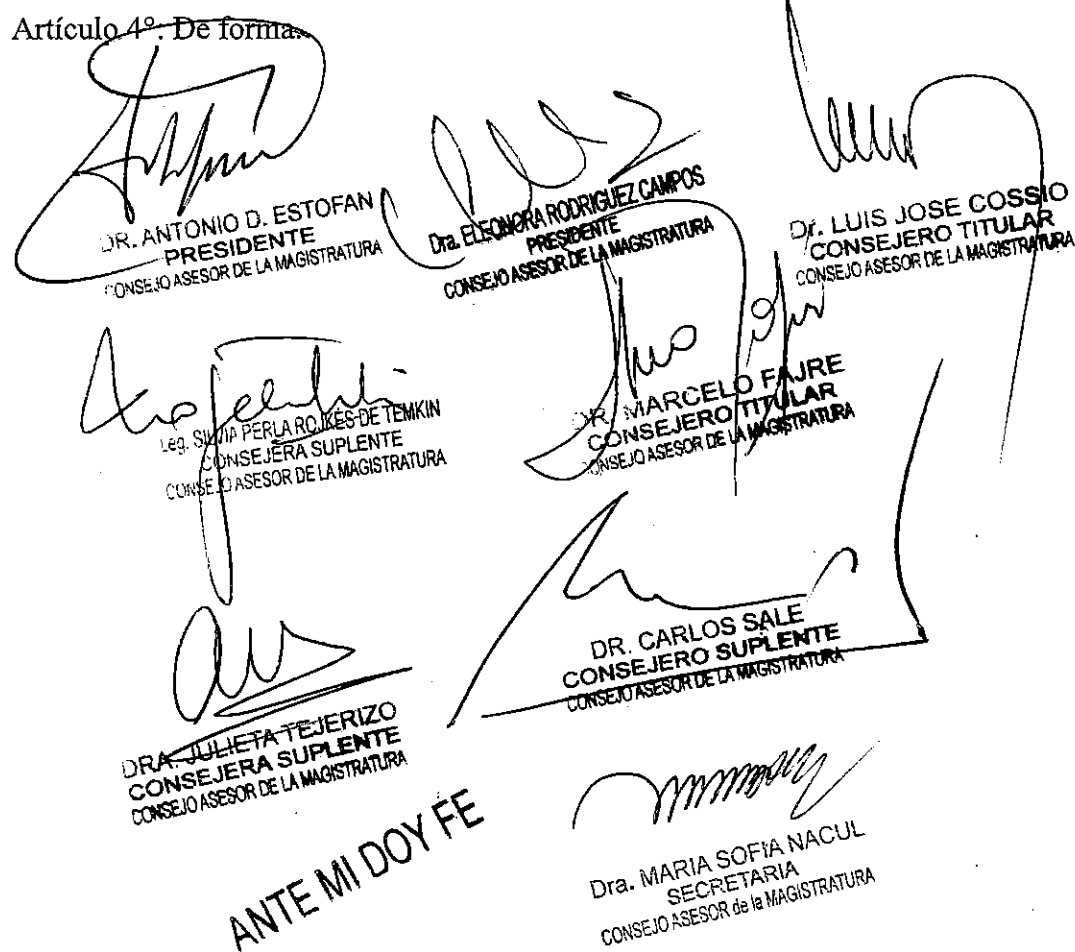 Artículo 4°. De forma.
DR. ANTONIO D. ESTOFAN
PRESIDENTE
CONSEJO ASESOR DE LA MAGISTRATURA
Dra. ELEONORA RODRIGUEZ CAMPOS
PRESIDENTE
CONSEJO ASESOR DE LA MAGISTRATURA
Dr. LUIS JOSE COSSIO
CONSEJERO TITULAR
CONSEJO ASESOR DE LA MAGISTRATURA
Leg. SILVIA PERLA ROJKES DE TEMKIN
CONSEJERA SUPLENTE
CONSEJO ASESOR DE LA MAGISTRATURA
DR. MARCELO FAJRE
CONSEJERO TITULAR
CONSEJO ASESOR DE LA MAGISTRATURA
DR. CARLOS SALE
CONSEJERO SUPLENTE
CONSEJO ASESOR DE LA MAGISTRATURA
DRA. JULIETA TEJERIZO
CONSEJERA SUPLENTE
CONSEJO ASESOR DE LA MAGISTRATURA
ANTE MI DOY FE
Dra. MARIA SOFIA NACUL
SECRETARIA
CONSEJO ASESOR de la MAGISTRATURA